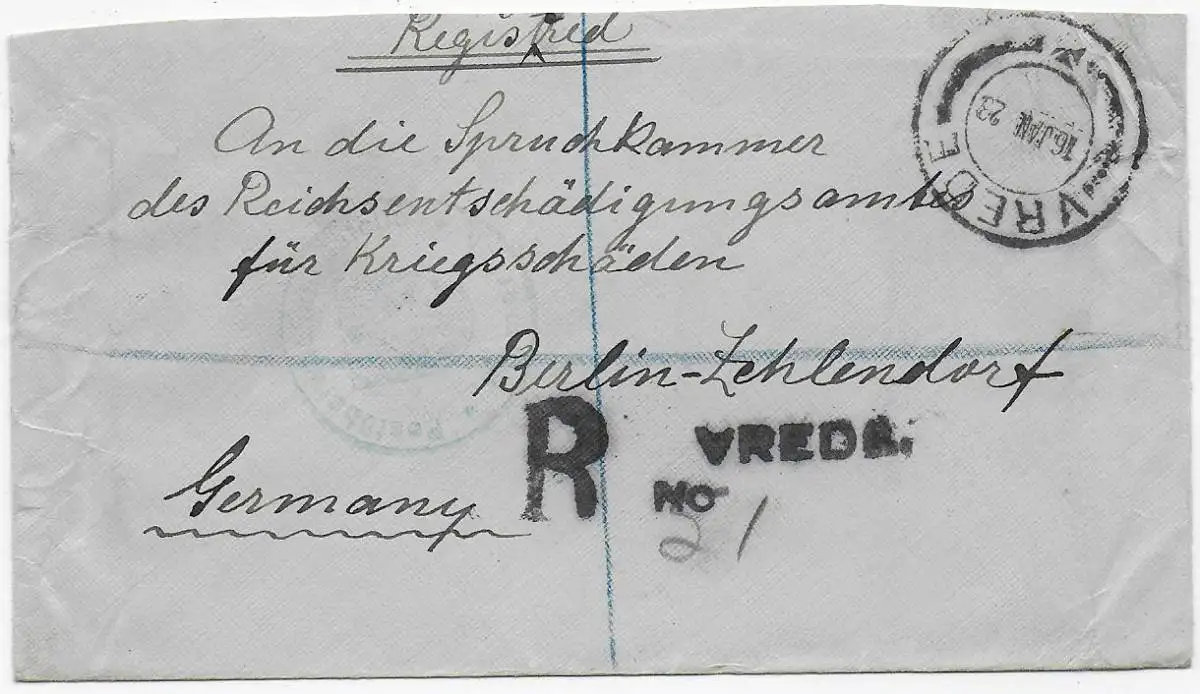 Registred
An die Spruchkammer
des Reichsentschädigungsamtes
für Kriegsschäden
Berlin-Zehlendorf
Germany
R
VREDE.
No
21
VREDE
16 JAN 23